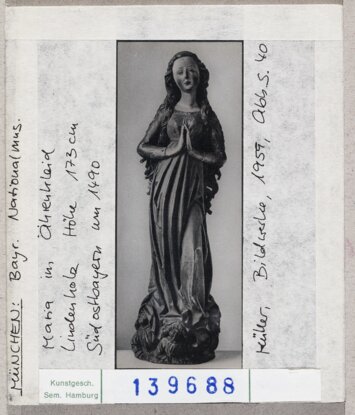 MÜNCHEN: Bayr. Nationalmus.
Maria im Ährenkleid
Lindenholz Höhe 173 cm
Südostbayern um 1490
Müller, Bildwerke, 1959, Abb. S. 40
Kunstgesch.
Sem. Hamburg
139688